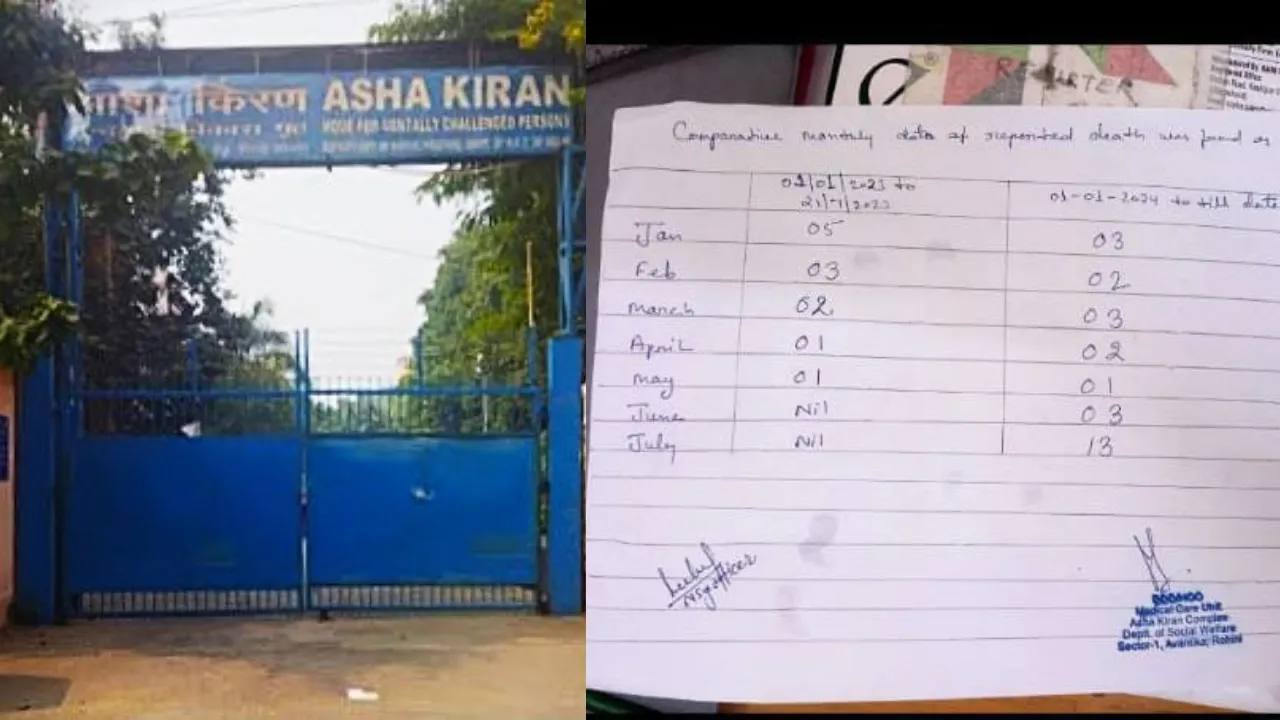 आशा किरण ASHA KIRAN
HOME FOR MENTALLY CHALLENGED PERSONS
REGISTER
Comparative monthly data of reported death was found as
01/01/2023 to 01-01-2024 to till date
Jan 05 03
Feb 03 02
March 02 03
April 01 02
May 01 01
June Nil 03
July Nil 13
Nsg officer
Medical Care Unit
Asha Kiran Complex
Deptt. of Social Welfare
Sector-1, Avantika, Rohini